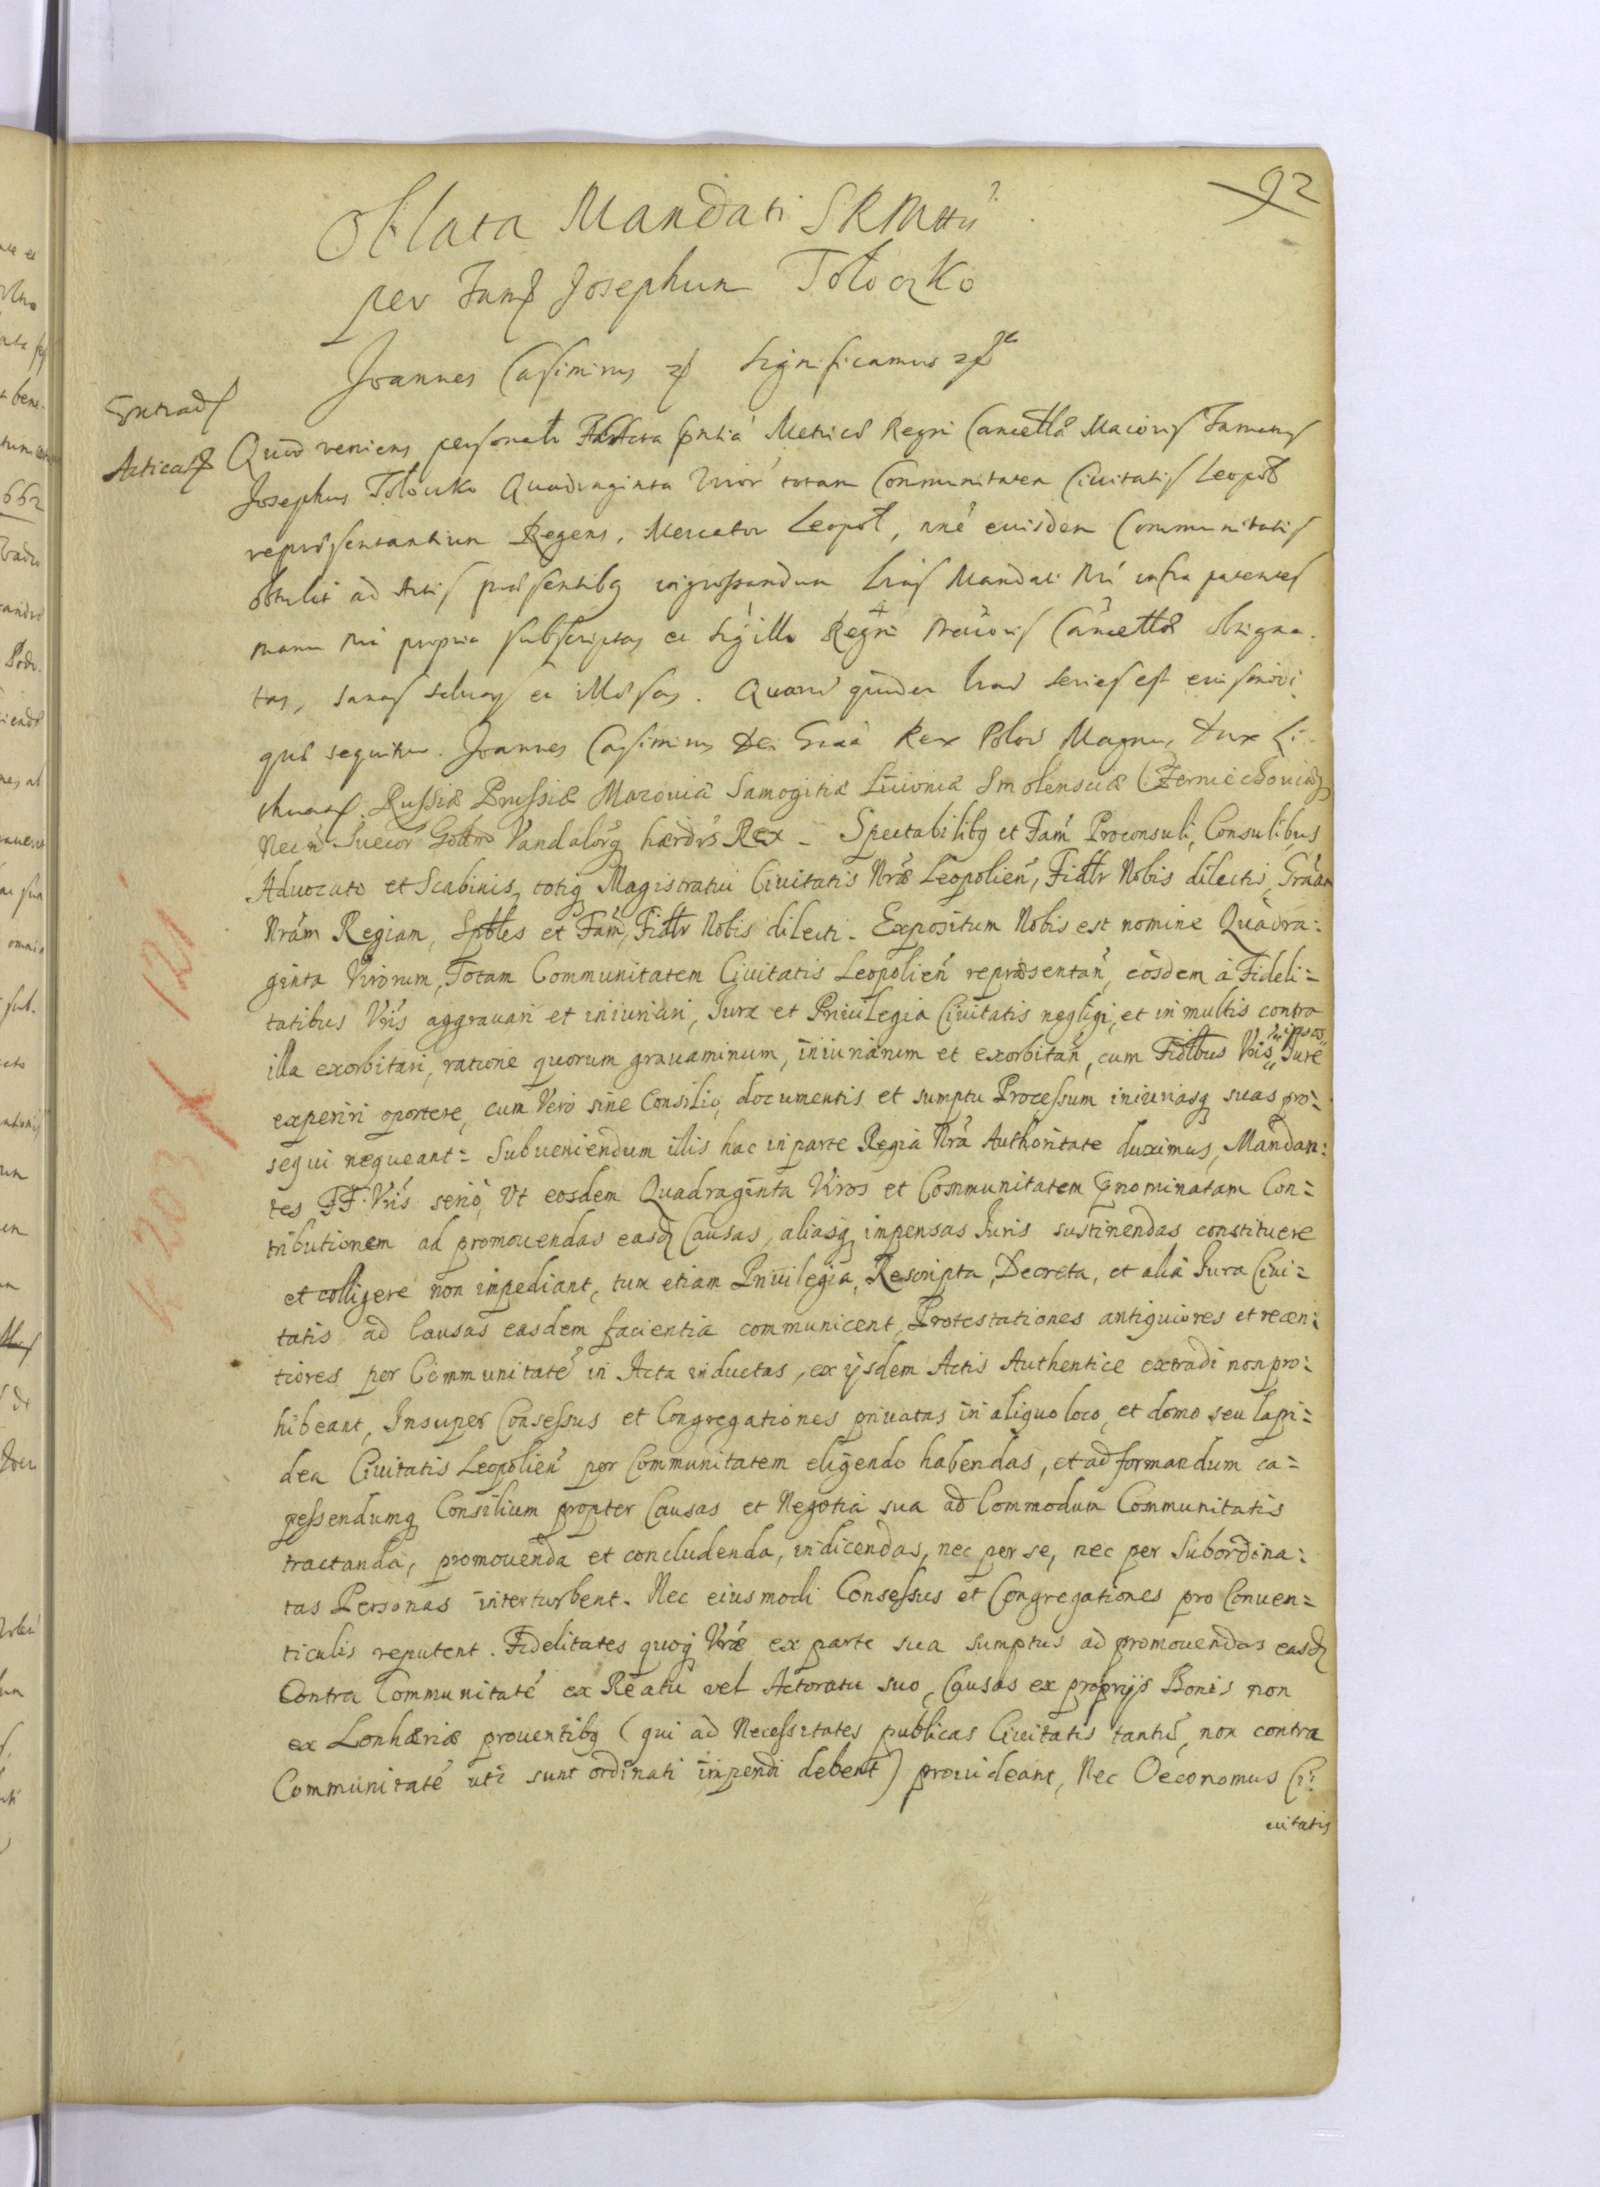 92
Oblata Mandati SRMttis
per Fam Josephum Toloczko
Joannes Casimirus Significamus
Extrad
Acticat
Quod veniens personalr Acta Metrices Regni Cancellae Maioris Famatus
Josephus Toloczko Quadraginta Viror totam Communitatem Ciuitatis Leopol
repraesentantium Regens, Mercator Leopol, nne eiusdem Communitatis
obtulit ad Actis praesentibq ingrossandum Lras Mandati Nri infra patentes
manu Nra propria subscriptas et Sigillo Regni Maioris Cancellae obsigna-
tas, sanas saluas et illaesas. Quarum quidem Lrar series est eiusmodi
quae sequitur. Joannes Casimirus Dei Graa Rex Polo Magnus Dux Li-
thuae Russiae Prussiae Mazouiae Samogitiae Liuoniae Smolensciae Czerniechouiaeq
Nec n Suecor Gottor Vandalorq haerds Rex - Spectabilibq et Fam Proconsuli, Consulibus
Aduocato et Scabinis, totiq Magistratui Ciuitatis Nrae Leopolien, Fidlr Nobis dilectis, Gráam
Nrám Regiam, Spbles et Fam, Fidlr Nobis dilecti. Expositum Nobis est nomine Quadra:
ginta Virorum, Totam Communitatem Ciuitatis Leopolien repraesentan, eosdem á Fideli=
tatibus Vris aggrauari et iniuriari, Jura et Priuilegia Ciuitatis negligi, et in multis contra
illa exorbitari, ratione quorum grauaminum, iniuriarum et exorbitan, cum Fidlbus Vris ipsos Jure
experiri oportere, cum Vero sine Consilio, documentis et sumptu Processum iniuriasq suas pro=
sequi nequeant= Subueniendum illis hac in parte Regia Nra Authoritate duximus, Mandan:
tes FF. Vris serio, Vt eosdem Quadraginta Viros et Communitatem pnominatam Con=
tributionem ad promouendas easd Causas, aliasq impensas Juris sustinendas constituere
et colligere non impediant, tum etiam Priuilegia, Rescripta, Decreta, et alia Jura Ciui=
tatis ad Causas easdem facientia communicent, Protestationes antiquiores et recen:
tiores per Communitaté in Acta inductas, ex ijsdem Actis Authentice extradi non pro:
hibeant, Insuper Consessus et Congregationes priuatas in aliquo loco, et domo seu lapi=
dea Ciuitatis Leopolien per Communitatem eligendo habendas, et ad formandum ca=
pessendumq Consilium propter Causas et Negotia sua ad Commodum Communitatis
tractanda, promouenda et concludenda, indicendas, nec per se, nec per Subordina:
tas Personas interturbent. Nec eiusmodi Consessus et Congregationes pro Conuen=
ticulis reputent. Fidelitates quoq Vrae ex parte sua sumptus ad promouendas easd
Contra Communitaté ex Reatu vel Actoratu suo, Causas ex proprijs Bonis non
ex Lonhaeriae prouentibq (qui ad Necessitates publicas Ciuitatis tantu, non contra
Communitaté uti sunt ordinati impendi debent) prouideant, Nec Oeconomus Ci:
uitatis